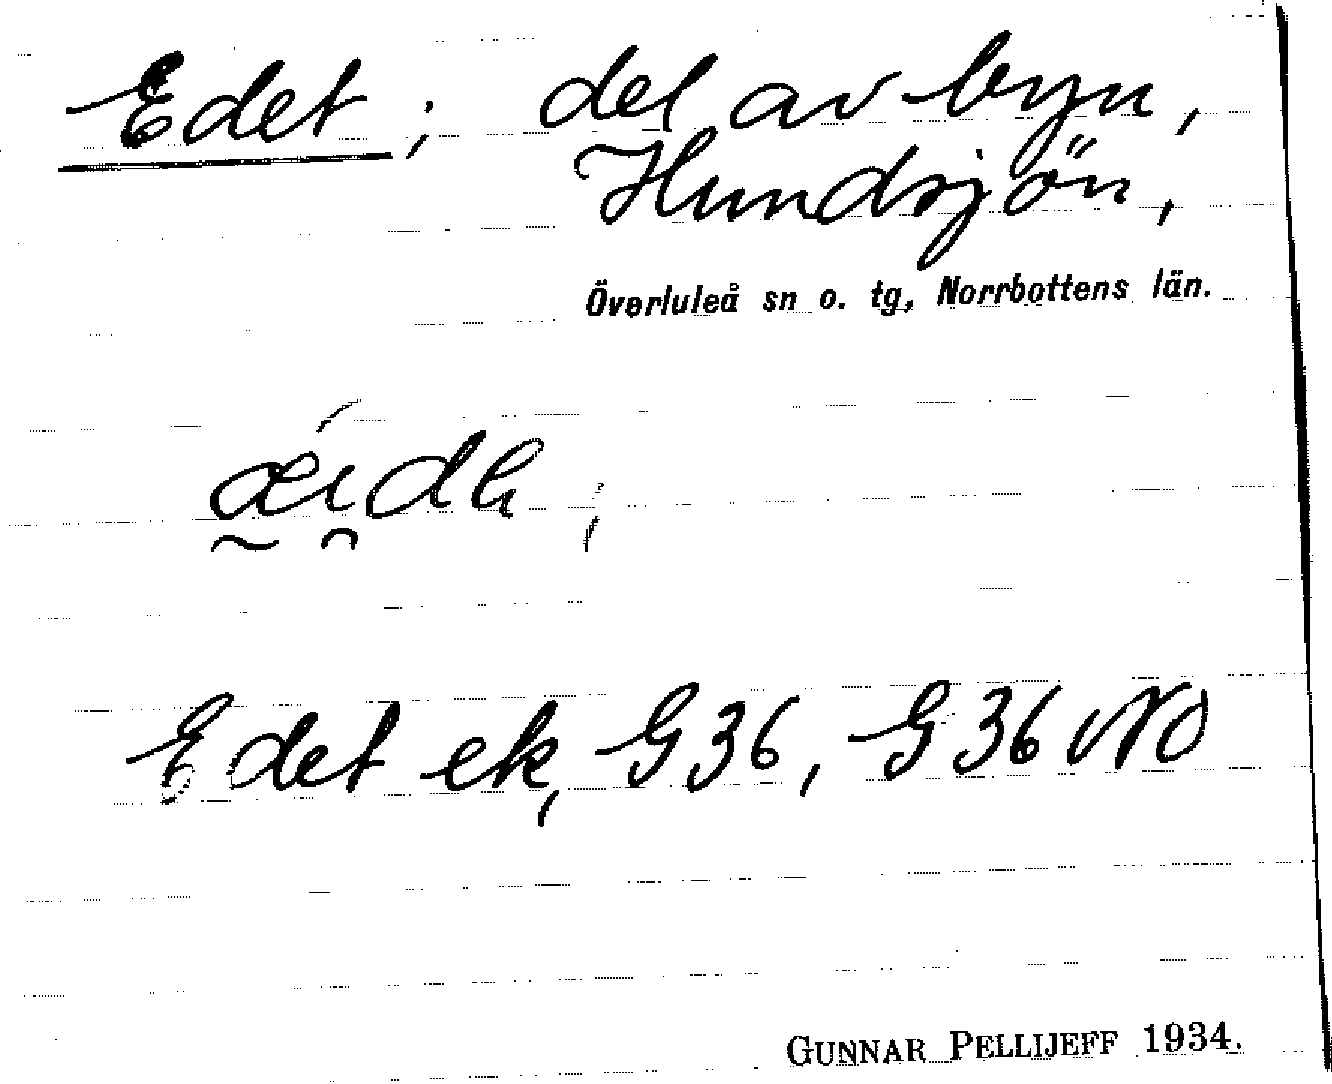 Edet; del av byn,
Hundsjön,
Överluleå sn o. tg, Norrbottens län.
Edet ek, G36, G36 NO
GUNNAR PELLIJEFF 1934.